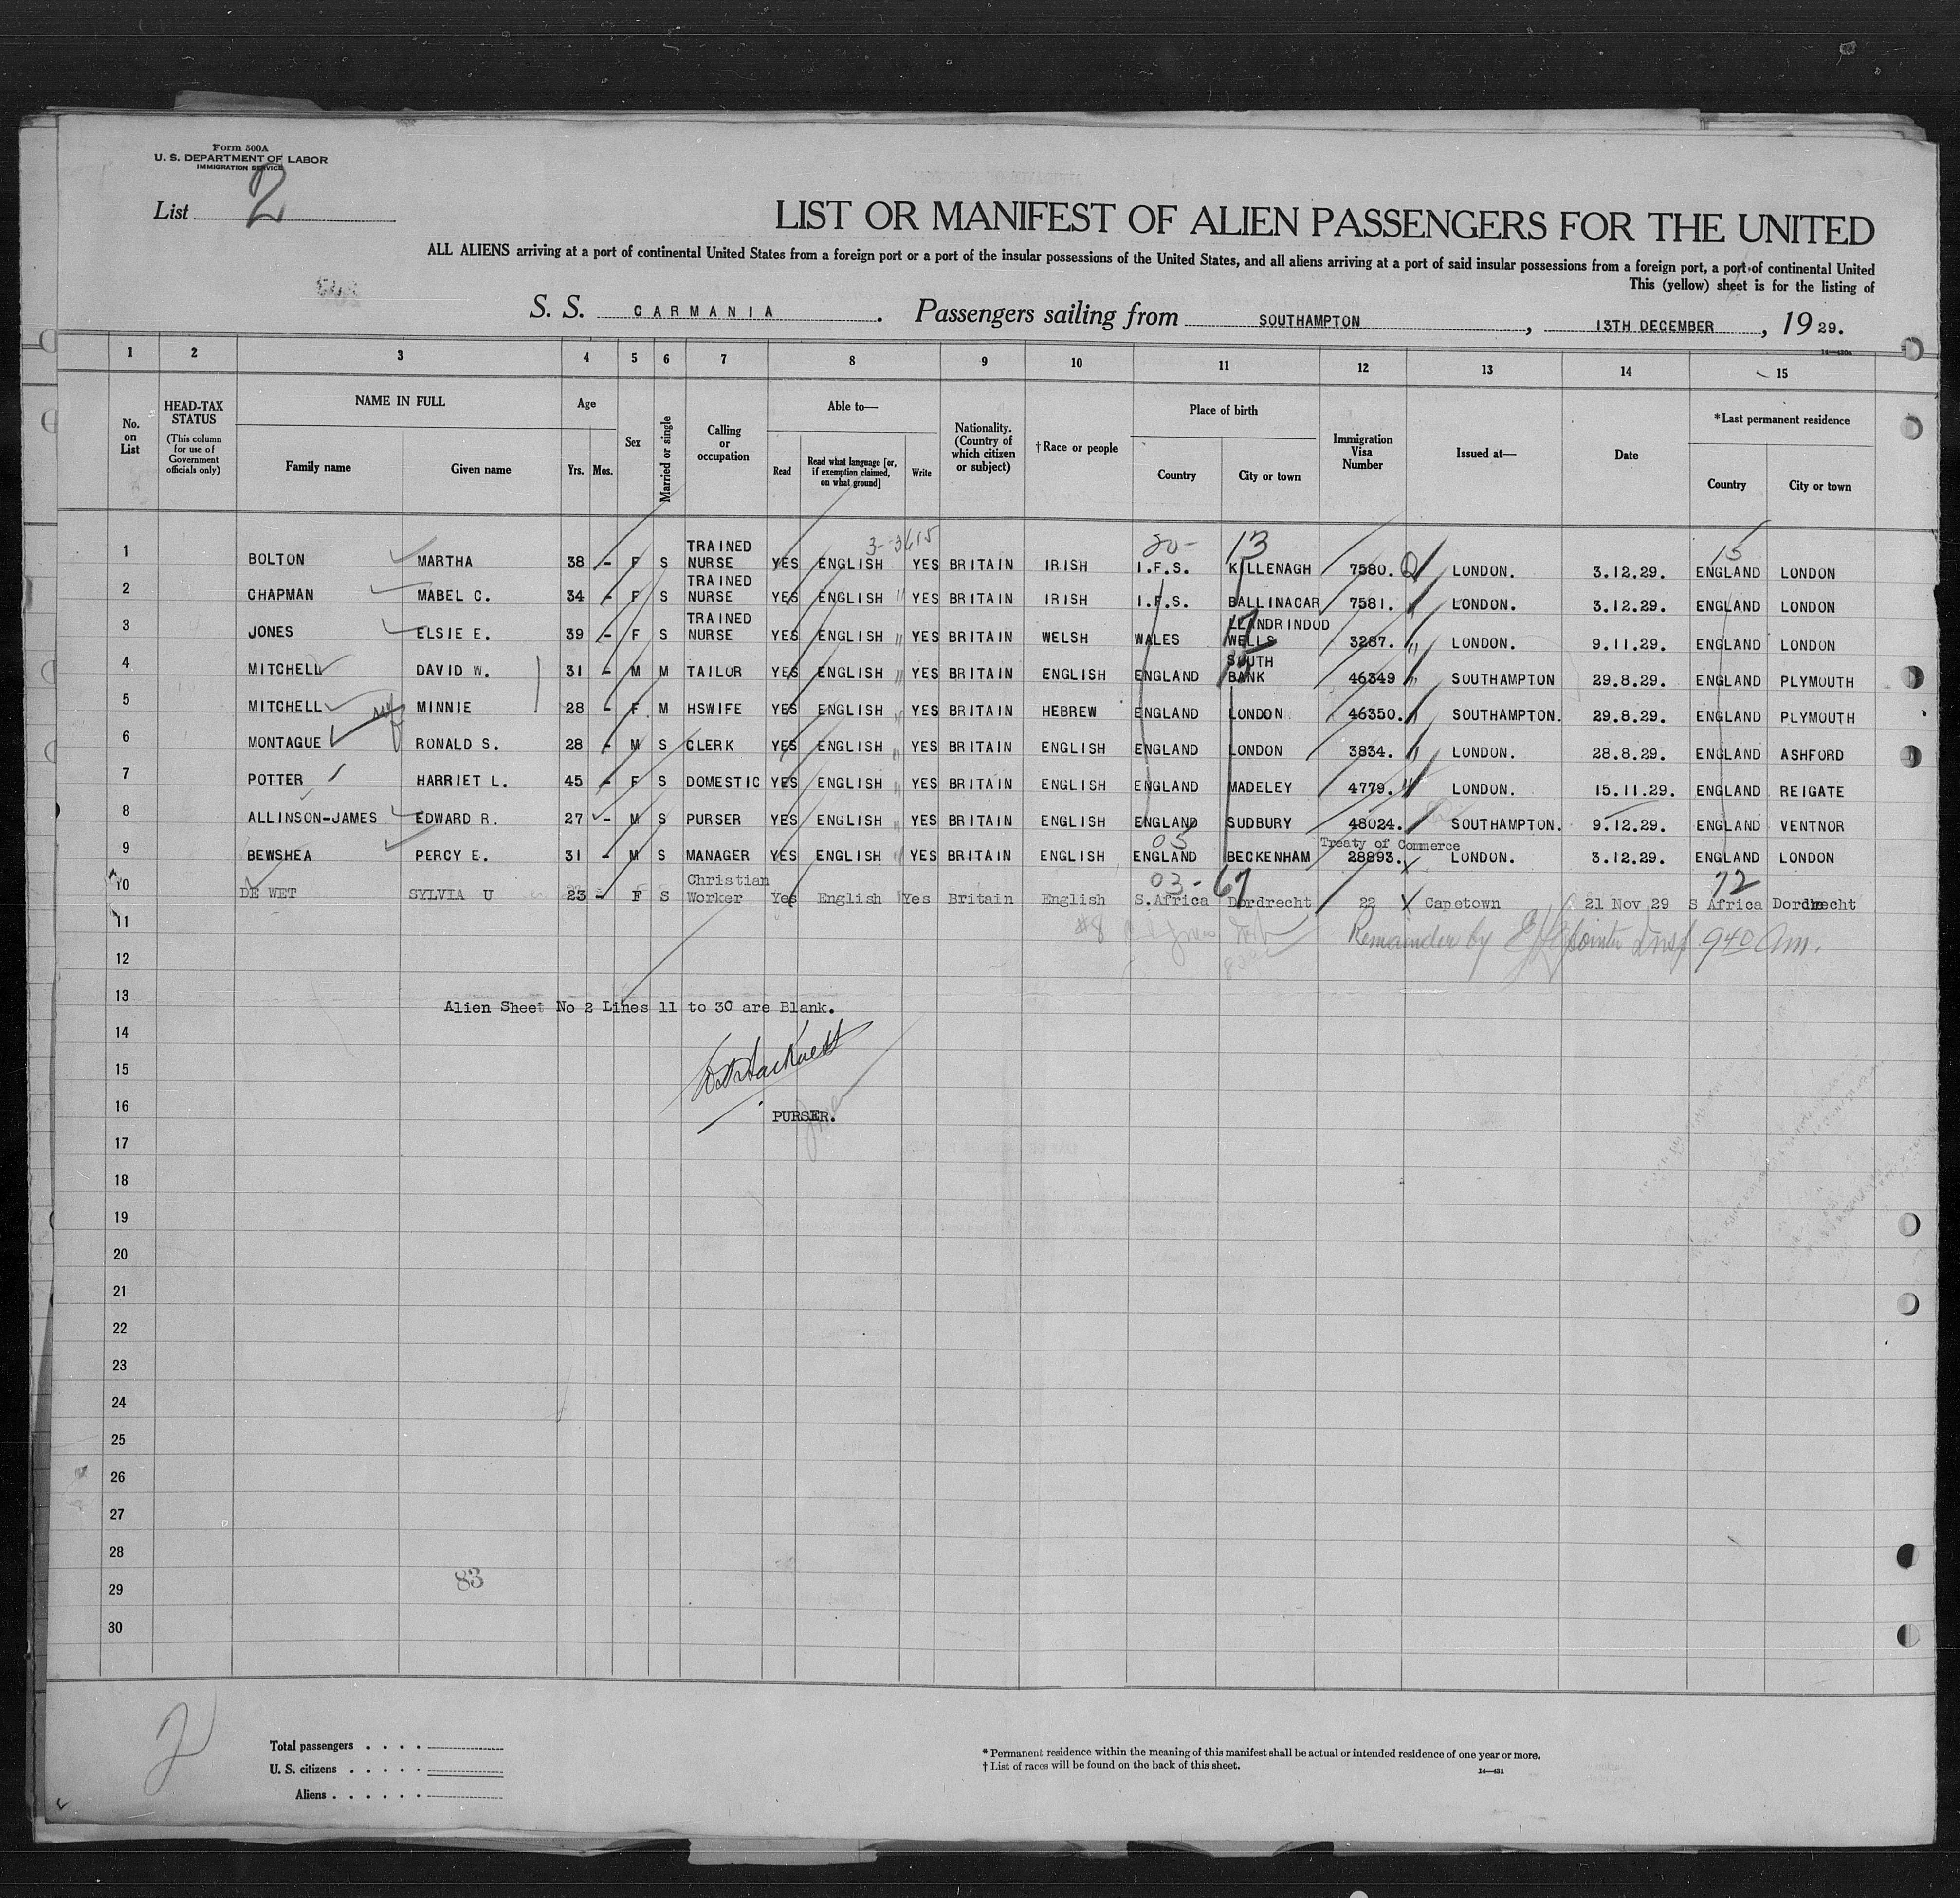 Form 500A
U. S. DEPARTMENT OF LABOR
IMMIGRATION SERVICE
List 2
LIST OR MANIFEST OF ALIEN PASSENGERS FOR THE UNITED
ALL ALIENS arriving at a port of continental United States from a foreign port or a port of the insular possessions of the United States, and all aliens arriving at a port of said insular possessions from a foreign port, a port of continental United
This (yellow) sheet is for the listing of
S. S. CARMANIA. Passengers sailing from SOUTHAMPTON, 13TH DECEMBER, 1929.
1 2 3 4 5 6 7 8 9 10 11 12 13 14 15
No. on List
HEAD-TAX STATUS (This column for use of Government officials only)
NAME IN FULL Family name Given name
Age Yrs. Mos.
Sex
Married or single
Calling or occupation
Able to— Read Read what language [or, if exemption claimed, on what ground] Write
Nationality. (Country of which citizen or subject)
†Race or people
Place of birth Country City or town
Immigration Visa Number
Issued at—
Date
*Last permanent residence Country City or town
20- 13 15
1 BOLTON MARTHA 38 - F S TRAINED NURSE YES ENGLISH YES BRITAIN IRISH I.F.S. KILLENAGH 7580. LONDON. 3.12.29. ENGLAND LONDON
2 CHAPMAN MABEL C. 34 - F S TRAINED NURSE YES ENGLISH " YES BRITAIN IRISH I.F.S. BALLINACAR 7581. LONDON. 3.12.29. ENGLAND LONDON
3 JONES ELSIE E. 39 - F S TRAINED NURSE YES ENGLISH " YES BRITAIN WELSH WALES LLANDRINDOD WELLS 3287. " LONDON. 9.11.29. ENGLAND LONDON
4 MITCHELL DAVID W. 31 - M M TAILOR YES ENGLISH " YES BRITAIN ENGLISH ENGLAND SOUTH BANK 46349 " SOUTHAMPTON 29.8.29. ENGLAND PLYMOUTH
5 MITCHELL MINNIE 28 - F M HSWIFE YES ENGLISH " YES BRITAIN HEBREW ENGLAND LONDON 46350. SOUTHAMPTON. 29.8.29. ENGLAND PLYMOUTH
6 MONTAGUE RONALD S. 28 - M S CLERK YES ENGLISH " YES BRITAIN ENGLISH ENGLAND LONDON 3834. " LONDON. 28.8.29. ENGLAND ASHFORD
7 POTTER HARRIET L. 45 - F S DOMESTIC YES ENGLISH " YES BRITAIN ENGLISH ENGLAND MADELEY 4779. " LONDON. 15.11.29. ENGLAND REIGATE
8 ALLINSON-JAMES EDWARD R. 27 - M S PURSER YES ENGLISH " YES BRITAIN ENGLISH ENGLAND SUDBURY 48024. SOUTHAMPTON. 9.12.29. ENGLAND VENTNOR
05 Treaty of Commerce
9 BEWSHEA PERCY E. 31 - M S MANAGER YES ENGLISH " YES BRITAIN ENGLISH ENGLAND BECKENHAM 28893. LONDON. 3.12.29. ENGLAND LONDON
03- 67 72
10 DE WET SYLVIA U 23 - F S Christian Worker Yes English Yes Britain English S.Africa Dordrecht 22 Capetown 21 Nov 29 S Africa Dordrecht
11 #8 Remainder by Insp 940 Am.
12
13 Alien Sheet No 2 Lines 11 to 30 are Blank.
14
15
16 PURSER.
17
18
19
20
21
22
23
24
25
26
27
28
29 83
30
2
Total passengers . . . .
U. S. citizens . . . . .
Aliens . . . . . .
* Permanent residence within the meaning of this manifest shall be actual or intended residence of one year or more.
† List of races will be found on the back of this sheet.
14—431